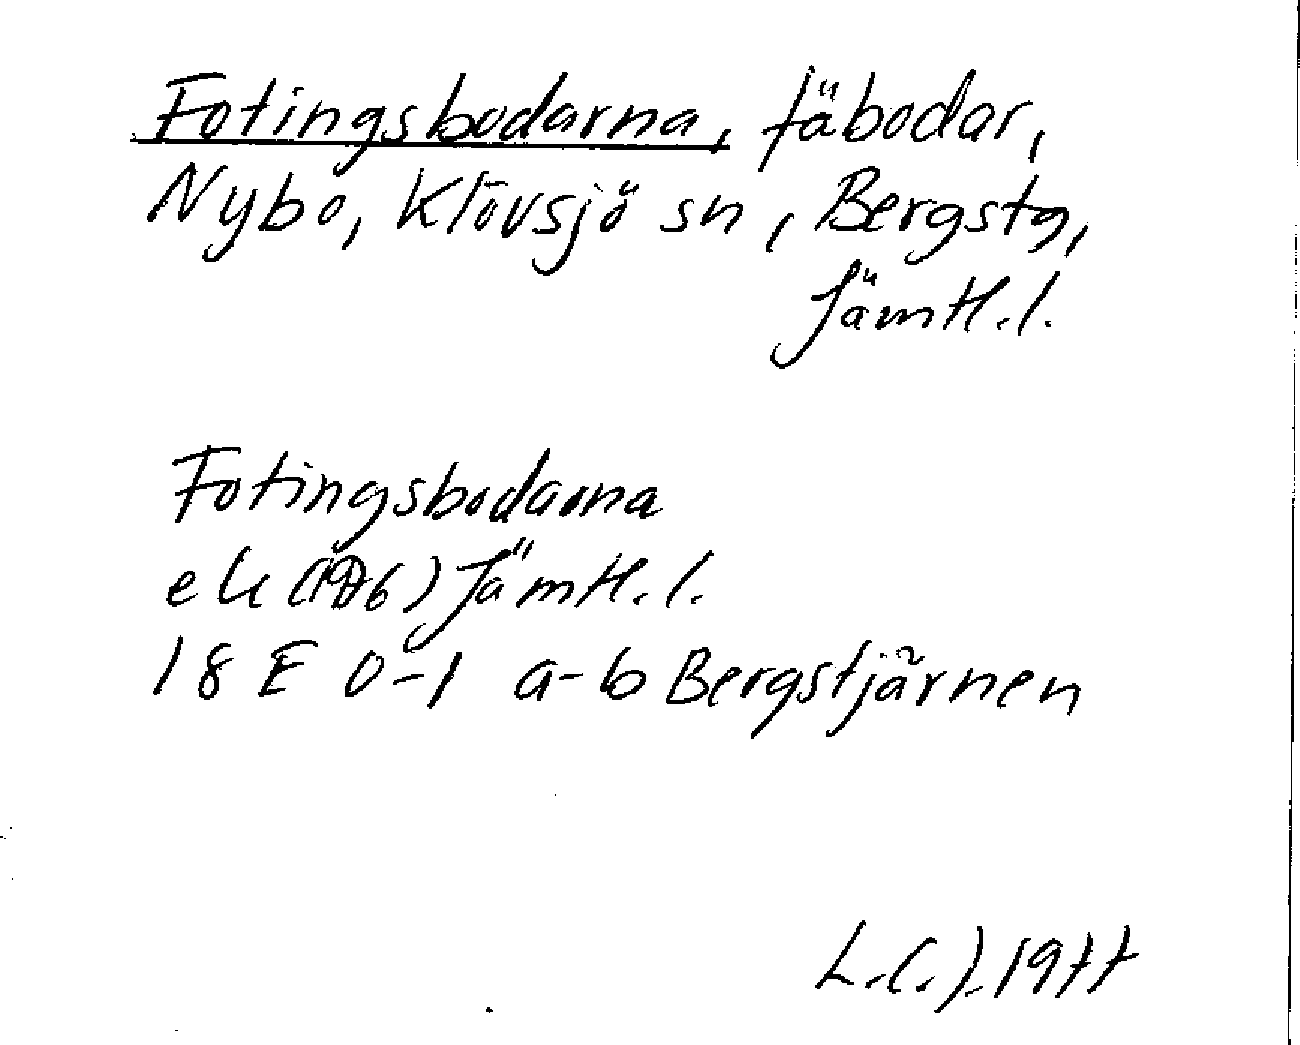 Fotingsbodarna, fäbodar,
Nybo, Klövsjö sn, Bergs tg,
Jämtl. l.
Fotingsbodarna
ek (1976) Jämtl. l.
18 E 0-1 a-b Bergstjärnen
L.C.J. 1977